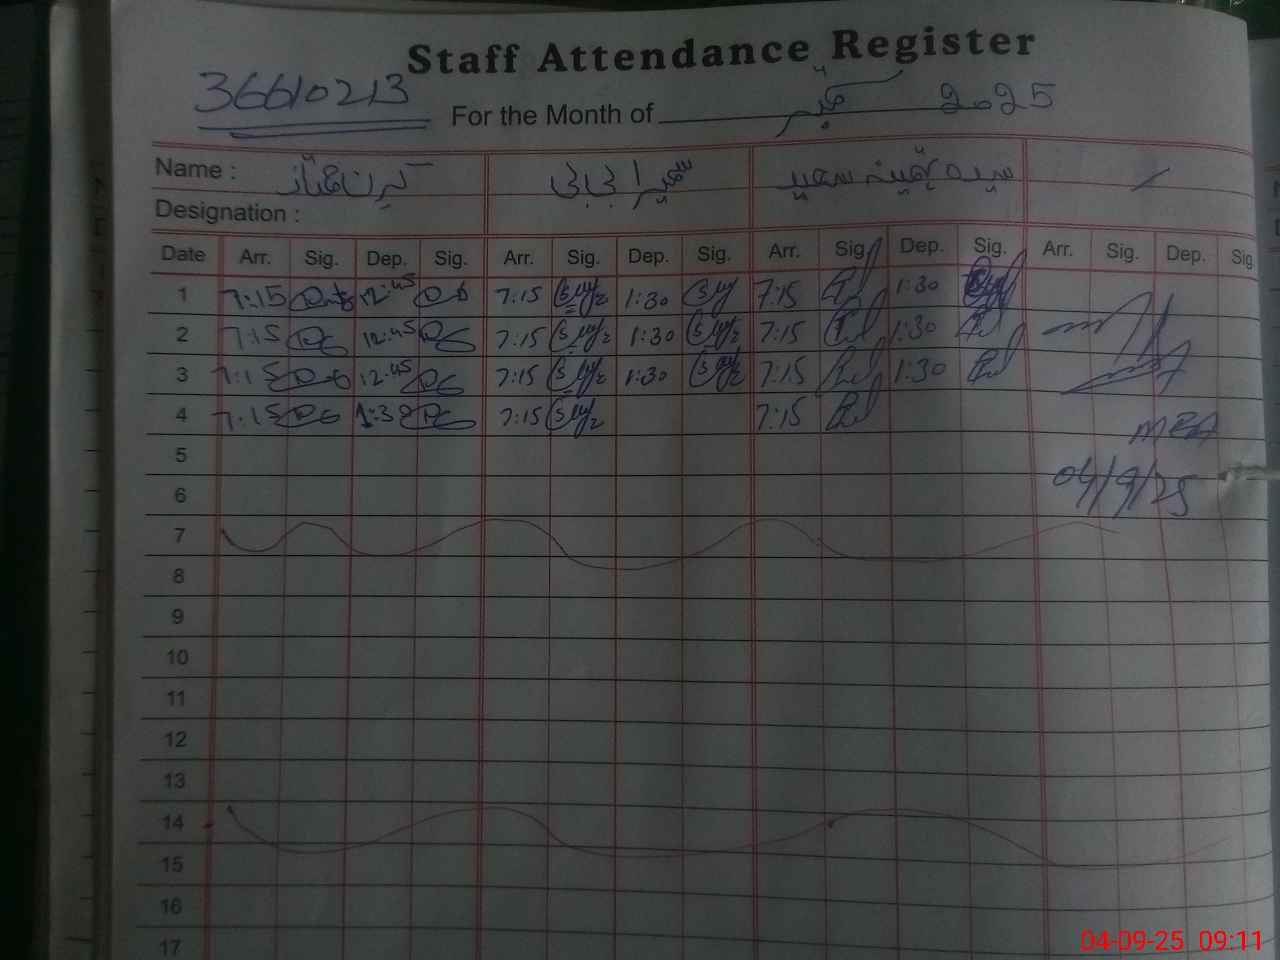 Staff Attendance Register
36610213
For the Month of ستمبر 2025
Name : کرن شہناز سمیرا بی بی سیدہ ثمینہ سعید
Designation :
Date Arr. Sig. Dep. Sig. Arr. Sig. Dep. Sig. Arr. Sig. Dep. Sig. Arr. Sig. Dep. Sig.
1 7:15 12:45 7:15 1:30 7:15 1:30
2 7:15 12:45 7:15 1:30 7:15 1:30
3 7:15 12:45 7:15 1:30 7:15 1:30
4 7:15 1:30 7:15 7:15
MEA
5
04/9/25
6
7
8
9
10
11
12
13
14
15
16
17
04-09-25 09:11